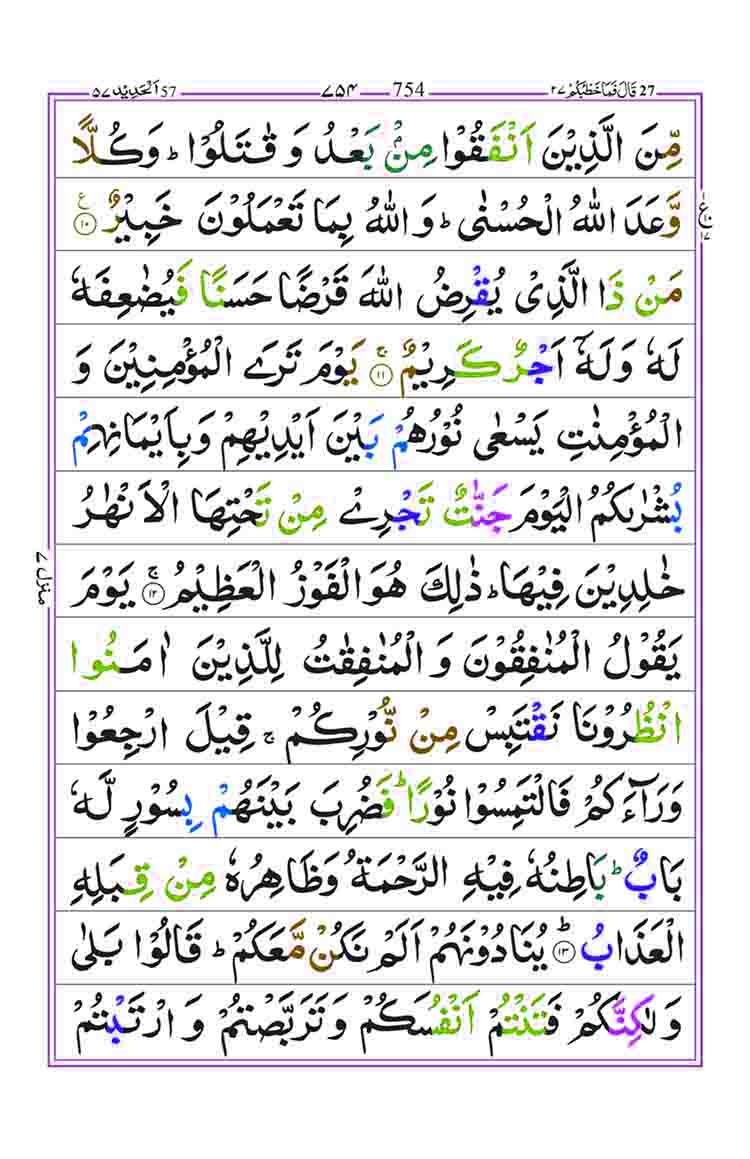 27 قَالَ فَمَا خَطْبُكُمْ ٢٧ 754 ۷۵۴ 57 اَلْحَدِيْد ۵۷
مِّنَ الَّذِيْنَ اَنْفَقُوْا مِنْۢ بَعْدُ وَ قٰتَلُوْا ؕ وَكُلًّا
وَّعَدَ اللّٰهُ الْحُسْنٰى ؕ وَاللّٰهُ بِمَا تَعْمَلُوْنَ خَبِيْرٌ ۧ ﴿۱۰﴾
مَنْ ذَا الَّذِىْ يُقْرِضُ اللّٰهَ قَرْضًا حَسَنًا فَيُضٰعِفَهٗ
لَهٗ وَلَهٗۤ اَجْرٌ كَرِيْمٌ ۚ ﴿۱۱﴾ يَوْمَ تَرَى الْمُؤْمِنِيْنَ وَ
الْمُؤْمِنٰتِ يَسْعٰى نُوْرُهُمْ بَيْنَ اَيْدِيْهِمْ وَبِاَيْمَانِهِمْ
بُشْرٰىكُمُ الْيَوْمَ جَنّٰتٌ تَجْرِىْ مِنْ تَحْتِهَا الْاَنْهٰرُ
خٰلِدِيْنَ فِيْهَا ؕ ذٰلِكَ هُوَ الْفَوْزُ الْعَظِيْمُ ۚ ﴿۱۲﴾ يَوْمَ
يَقُوْلُ الْمُنٰفِقُوْنَ وَ الْمُنٰفِقٰتُ لِلَّذِيْنَ اٰمَنُوا
انْظُرُوْنَا نَقْتَبِسْ مِنْ نُّوْرِكُمْ ۚ قِيْلَ ارْجِعُوْا
وَرَآءَكُمْ فَالْتَمِسُوْا نُوْرًا ؕ فَضُرِبَ بَيْنَهُمْ بِسُوْرٍ لَّهٗ
بَابٌ ؕ بَاطِنُهٗ فِيْهِ الرَّحْمَةُ وَظَاهِرُهٗ مِنْ قِبَلِهِ
الْعَذَابُ ؕ ﴿۱۳﴾ يُنَادُوْنَهُمْ اَلَمْ نَكُنْ مَّعَكُمْ ؕ قَالُوْا بَلٰى
وَلٰكِنَّكُمْ فَتَنْتُمْ اَنْفُسَكُمْ وَتَرَبَّصْتُمْ وَ ارْتَبْتُمْ
منزل ۷